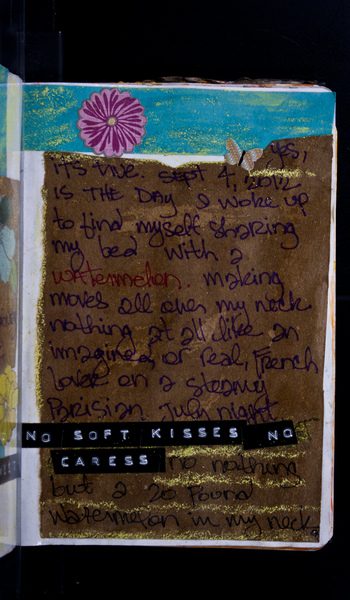 yes,
it's true. sept 4, 2012
IS THE DAY I woke up
to find myself sharing
my bed with a
watermelon. making
moves all over my neck
nothing at all like an
imagined, or real, French
lover on a steamy
Parisian July night.
NO SOFT KISSES NO
CARESS no nothing
but a 20 pound
watermelon in my neck